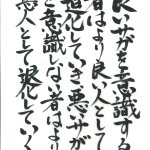 良いサガを意識する
者はより良い人として
進化していき悪いサガ
を意識しない者はより
悪人として退化していく